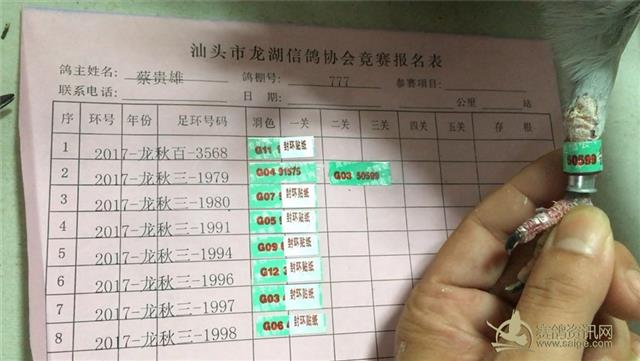 汕头市龙湖信鸽协会竞赛报名表
鸽主姓名: 蔡贵雄 鸽棚号: 777 参赛项目:
联系电话: 日期: 公里 站
序 环号 年份 足环号码 羽色 一关 二关 三关 四关 五关 存根
1 2017-龙秋百-3568 G11 封环贴纸
2 2017-龙秋三-1979 G04 91575 G03 50599
3 2017-龙秋三-1980 G07 封环贴纸
4 2017-龙秋三-1991 G05 封环贴纸
5 2017-龙秋三-1994 G09 封环贴纸
6 2017-龙秋三-1996 G12 封环贴纸
7 2017-龙秋三-1997 G03 封环贴纸
8 2017-龙秋三-1998 G06 封环贴纸
50599
赛鸽资讯网
www.saige.com